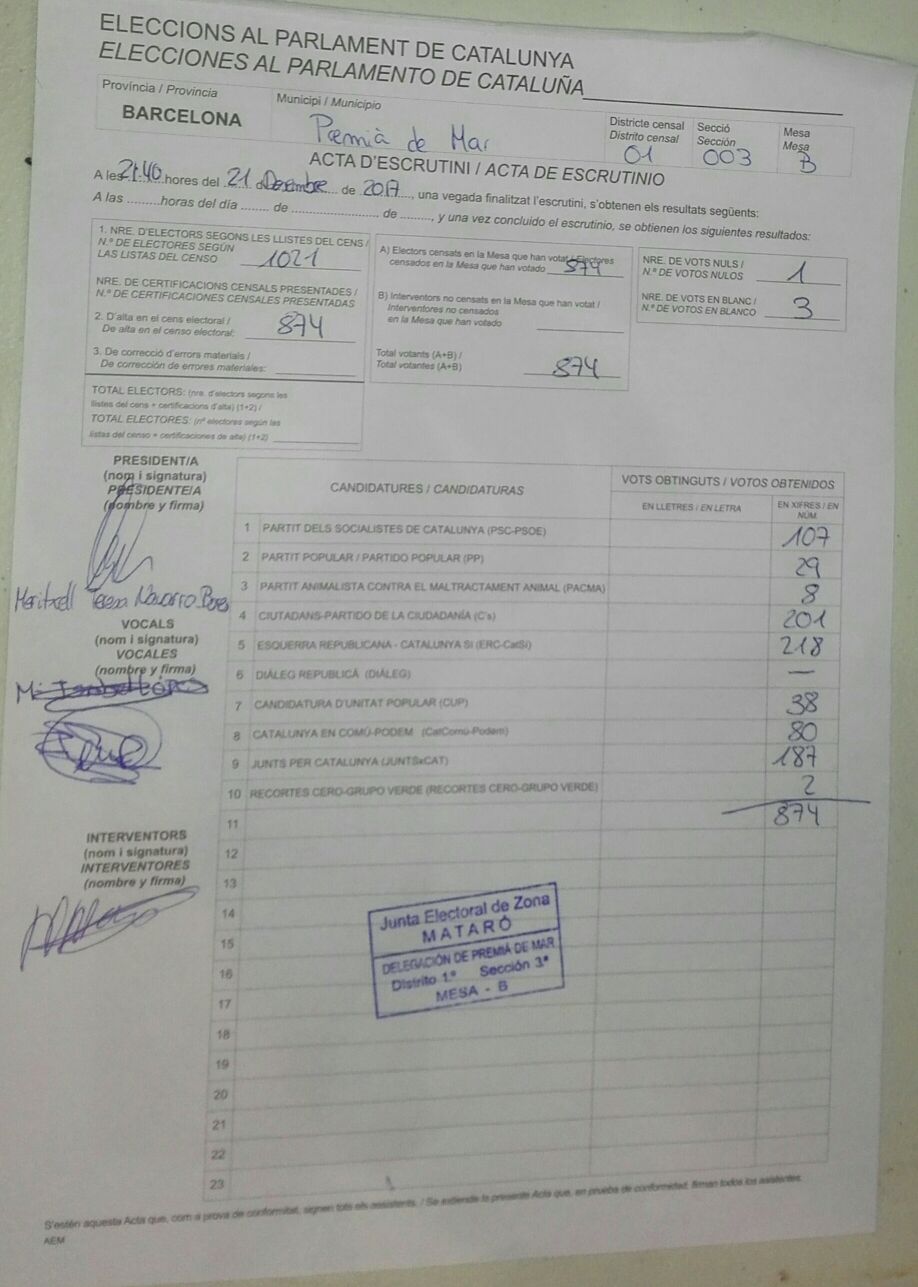 ELECCIONS AL PARLAMENT DE CATALUNYA
ELECCIONES AL PARLAMENTO DE CATALUÑA
Província / Provincia
BARCELONA
Municipi / Municipio
Premià de Mar
Districte censal
Distrito censal
01
Secció
Sección
003
Mesa
Mesa
B
ACTA D'ESCRUTINI / ACTA DE ESCRUTINIO
A les 21:40 hores del 21 d Desembre de 2017, una vegada finalitzat l'escrutini, s'obtenen els resultats següents:
A las .........horas del día ........ de ........................ de ........., y una vez concluido el escrutinio, se obtienen los siguientes resultados:
1. NRE. D'ELECTORS SEGONS LES LLISTES DEL CENS /
N.º DE ELECTORES SEGÚN
LAS LISTAS DEL CENSO 1021
NRE. DE CERTIFICACIONS CENSALS PRESENTADES /
N.º DE CERTIFICACIONES CENSALES PRESENTADAS
2. D'alta en el cens electoral /
De alta en el censo electoral: 874
3. De correcció d'errors materials /
De corrección de errores materiales:
TOTAL ELECTORS: (nre. d'electors segons les
llistes del cens + certificacions d'alta) (1+2) /
TOTAL ELECTORES: (nº electores según las
listas del censo + certificaciones de alta) (1+2)
A) Electors censats en la Mesa que han votat / Electores
censados en la Mesa que han votado 874
B) Interventors no censats en la Mesa que han votat /
Interventores no censados
en la Mesa que han votado
Total votants (A+B) /
Total votantes (A+B) 874
NRE. DE VOTS NULS /
N.º DE VOTOS NULOS 1
NRE. DE VOTS EN BLANC /
N.º DE VOTOS EN BLANCO 3
PRESIDENT/A
(nom i signatura)
PRESIDENTE/A
(nombre y firma)
Meritxell Teresa Navarro
VOCALS
(nom i signatura)
VOCALES
(nombre y firma)
INTERVENTORS
(nom i signatura)
INTERVENTORES
(nombre y firma)
CANDIDATURES / CANDIDATURAS
VOTS OBTINGUTS / VOTOS OBTENIDOS
EN LLETRES / EN LETRA
EN XIFRES / EN NÚM.
1 PARTIT DELS SOCIALISTES DE CATALUNYA (PSC-PSOE) 107
2 PARTIT POPULAR / PARTIDO POPULAR (PP) 29
3 PARTIT ANIMALISTA CONTRA EL MALTRACTAMENT ANIMAL (PACMA) 8
4 CIUTADANS-PARTIDO DE LA CIUDADANÍA (C's) 201
5 ESQUERRA REPUBLICANA - CATALUNYA SÍ (ERC-CatSí) 218
6 DIÀLEG REPUBLICÀ (DIÀLEG) —
7 CANDIDATURA D'UNITAT POPULAR (CUP) 38
8 CATALUNYA EN COMÚ-PODEM (CatComú-Podem) 80
9 JUNTS PER CATALUNYA (JUNTSxCAT) 187
10 RECORTES CERO-GRUPO VERDE (RECORTES CERO-GRUPO VERDE) 2
11 874
12
13
14
15
16
17
18
19
20
21
22
23
Junta Electoral de Zona
MATARÓ
DELEGACIÓN DE PREMIÀ DE MAR
Distrito 1.º Sección 3ª
MESA - B
S'estén aquesta Acta que, com a prova de conformitat, signen tots els assistents. / Se extiende la presente Acta que, en prueba de conformidad, firman todos los asistentes.
AEM